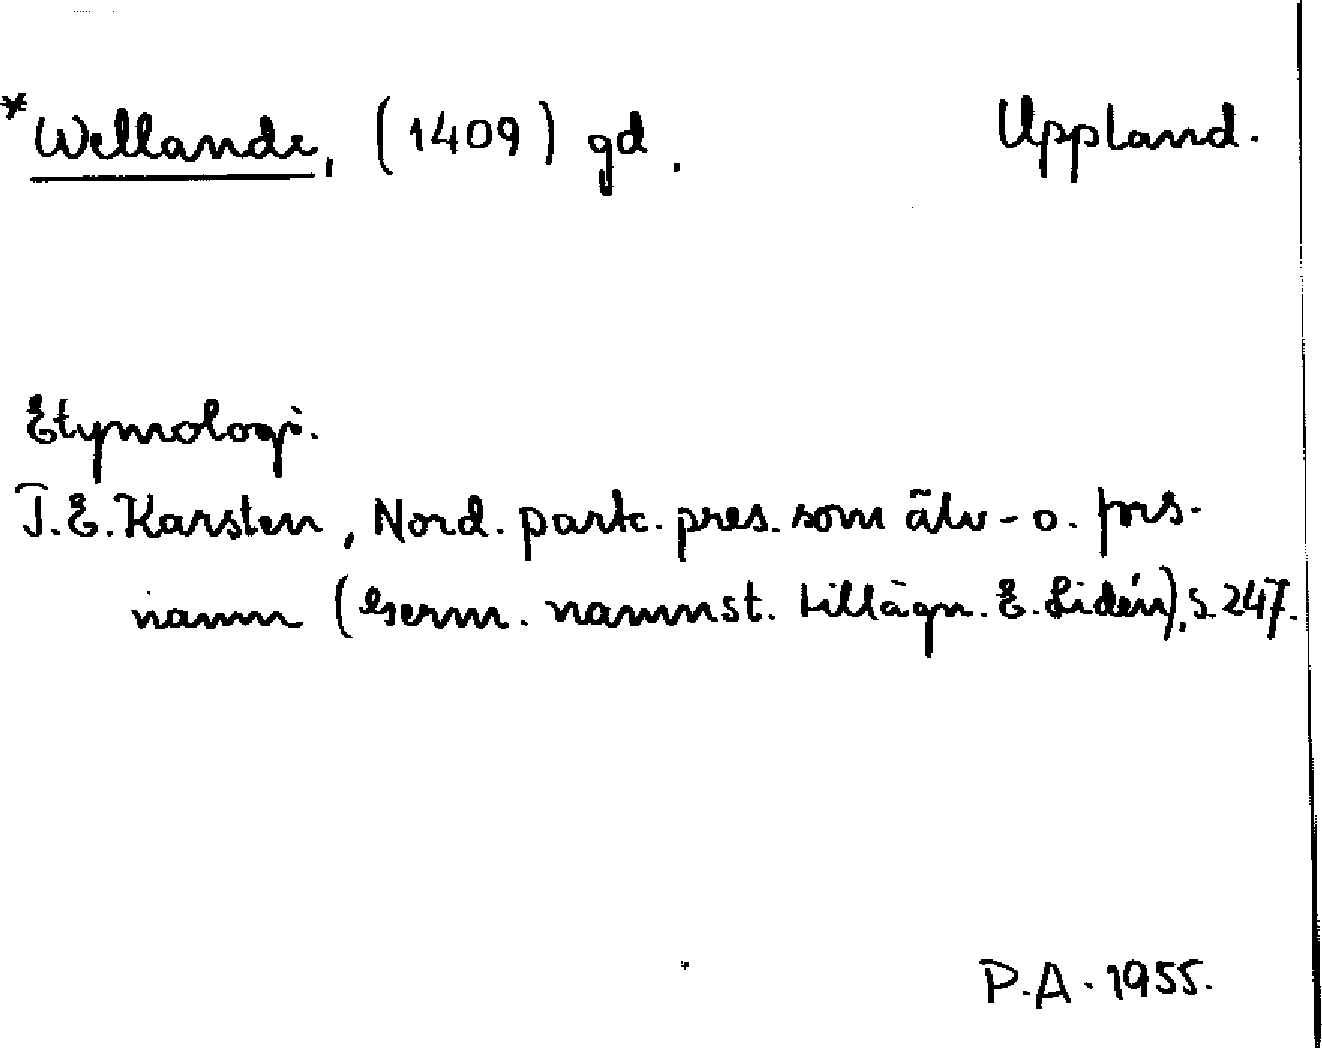 *Wellande, (1409) gd. Uppland.
Etymologi.
T.E. Karsten, Nord. partc. pres. som älv- o. fors-
namn (Germ. namnst. tillägn. E. Lidén), s. 247.
P.A. 1955.